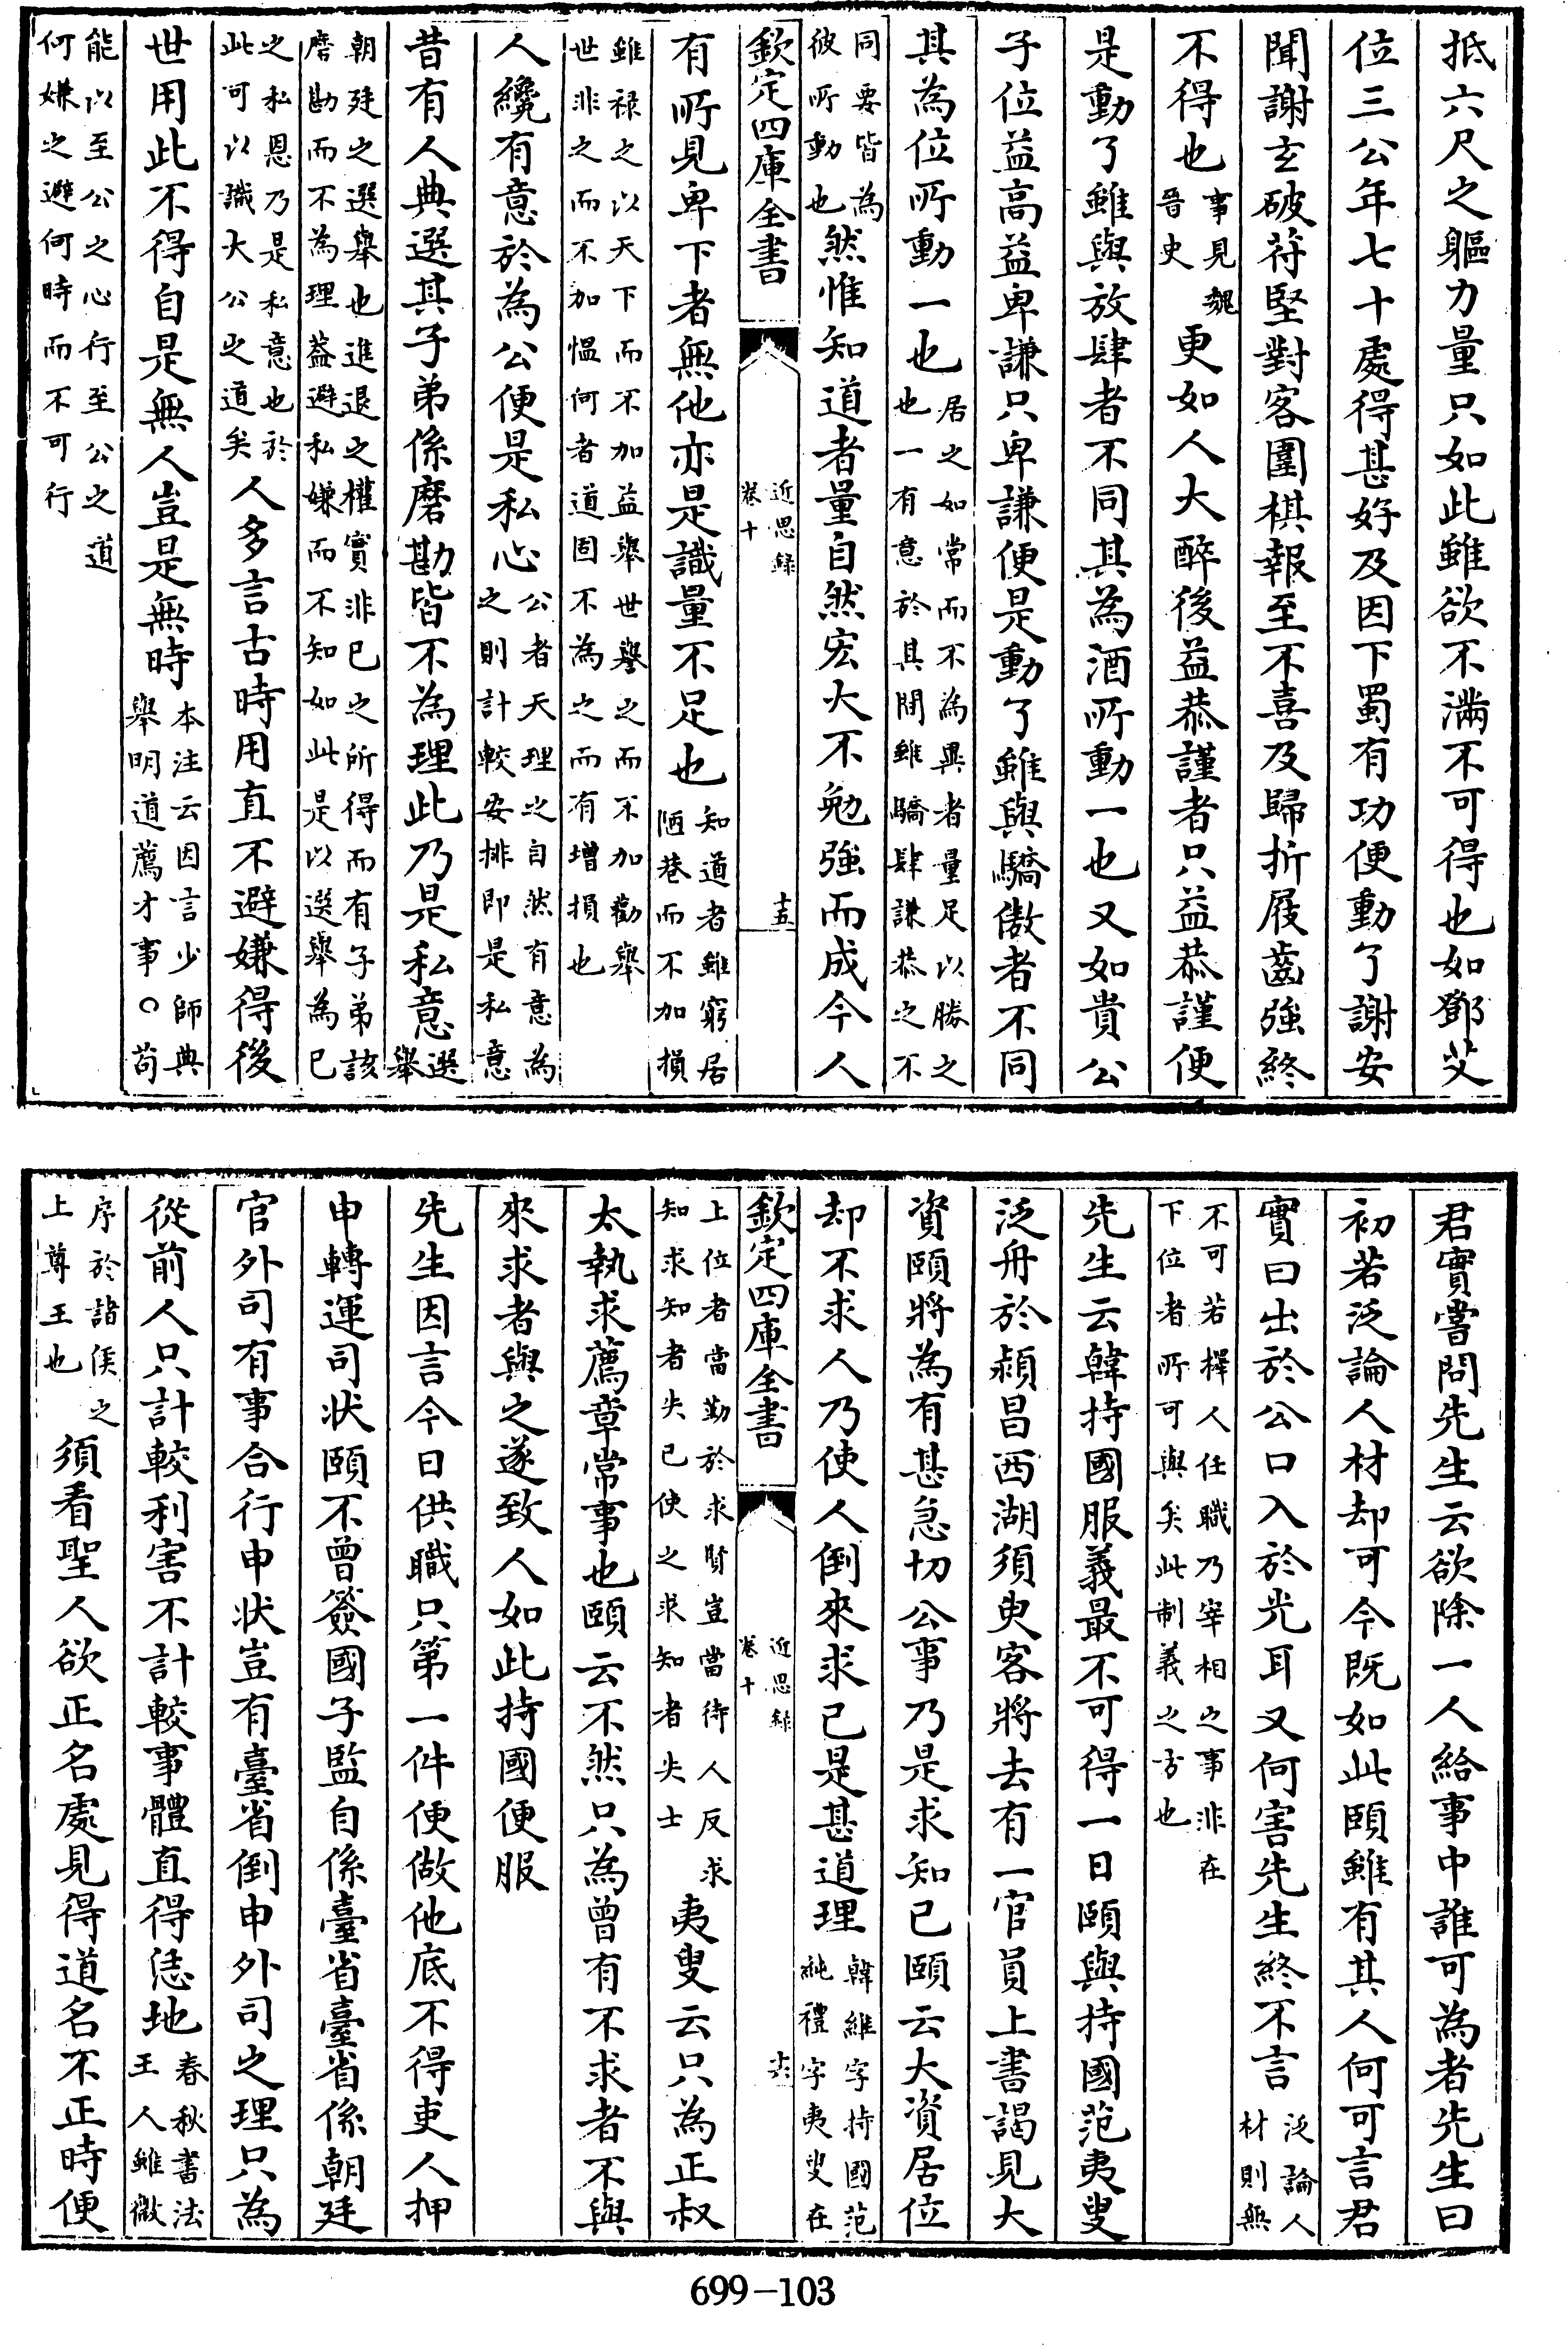 抵六尺之軀力量只如此雖欲不滿不可得也如鄧艾
位三公年七十處得甚好及因下蜀有功便動了謝安
聞謝玄破苻堅對客圍棋報至不喜及歸折屐齒強終
不得也事見魏晉史更如人大醉後益恭謹者只益恭謹便
是動了雖與放肆者不同其為酒所動一也又如貴公
子位益高益卑謙只卑謙便是動了雖與驕傲者不同
其為位所動一也居之如常而不為異者量足以勝之也一有意於其間雖驕肆謙恭之不
同要皆為彼所動也然惟知道者量自然宏大不勉強而成今人
欽定四庫全書 近思錄卷十 十五
有所見卑下者無他亦是識量不足也知道者雖窮居陋巷而不加損
雖祿之以天下而不加益舉世譽之而不加勸舉世非之而不加慍何者道固不為之而有增損也
人纔有意於為公便是私心公者天理之自然有意為之則計較安排即是私意
昔有人典選其子弟係磨勘皆不為理此乃是私意選舉
朝廷之選舉也進退之權實非已之所得而有子弟該磨勘而不為理蓋避私嫌而不知如此是以選舉為已
之私恩乃是私意也於此可以識大公之道矣人多言古時用直不避嫌得後
世用此不得自是無人豈是無時本注云因言少師典舉明道薦才事○苟
能以至公之心行至公之道何嫌之避何時而不可行
君實嘗問先生云欲除一人給事中誰可為者先生曰
初若泛論人材却可今既如此頤雖有其人何可言君
實曰出於公口入於光耳又何害先生終不言泛論人材則無
不可若擇人任職乃宰相之事非在下位者所可與矣此制義之方也
先生云韓持國服義最不可得一日頤與持國范夷叟
泛舟於潁昌西湖須臾客將去有一官員上書謁見大
資頤將為有甚急切公事乃是求知已頤云大資居位
却不求人乃使人倒來求已是甚道理韓維字持國范純禮字夷叟在
欽定四庫全書 近思錄卷十 十六
上位者當勤於求賢豈當待人反求知求知者失已使之求知者失士夷叟云只為正叔
太執求薦章常事也頤云不然只為曾有不求者不與
來求者與之遂致人如此持國便服
先生因言今日供職只第一件便做他底不得吏人押
申轉運司状頤不曾簽國子監自係臺省臺省係朝廷
官外司有事合行申状豈有臺省倒申外司之理只為
從前人只計較利害不計較事體直得恁地春秋書法王人雖微
序於諸侯之上尊王也須看聖人欲正名處見得道名不正時便
699-103